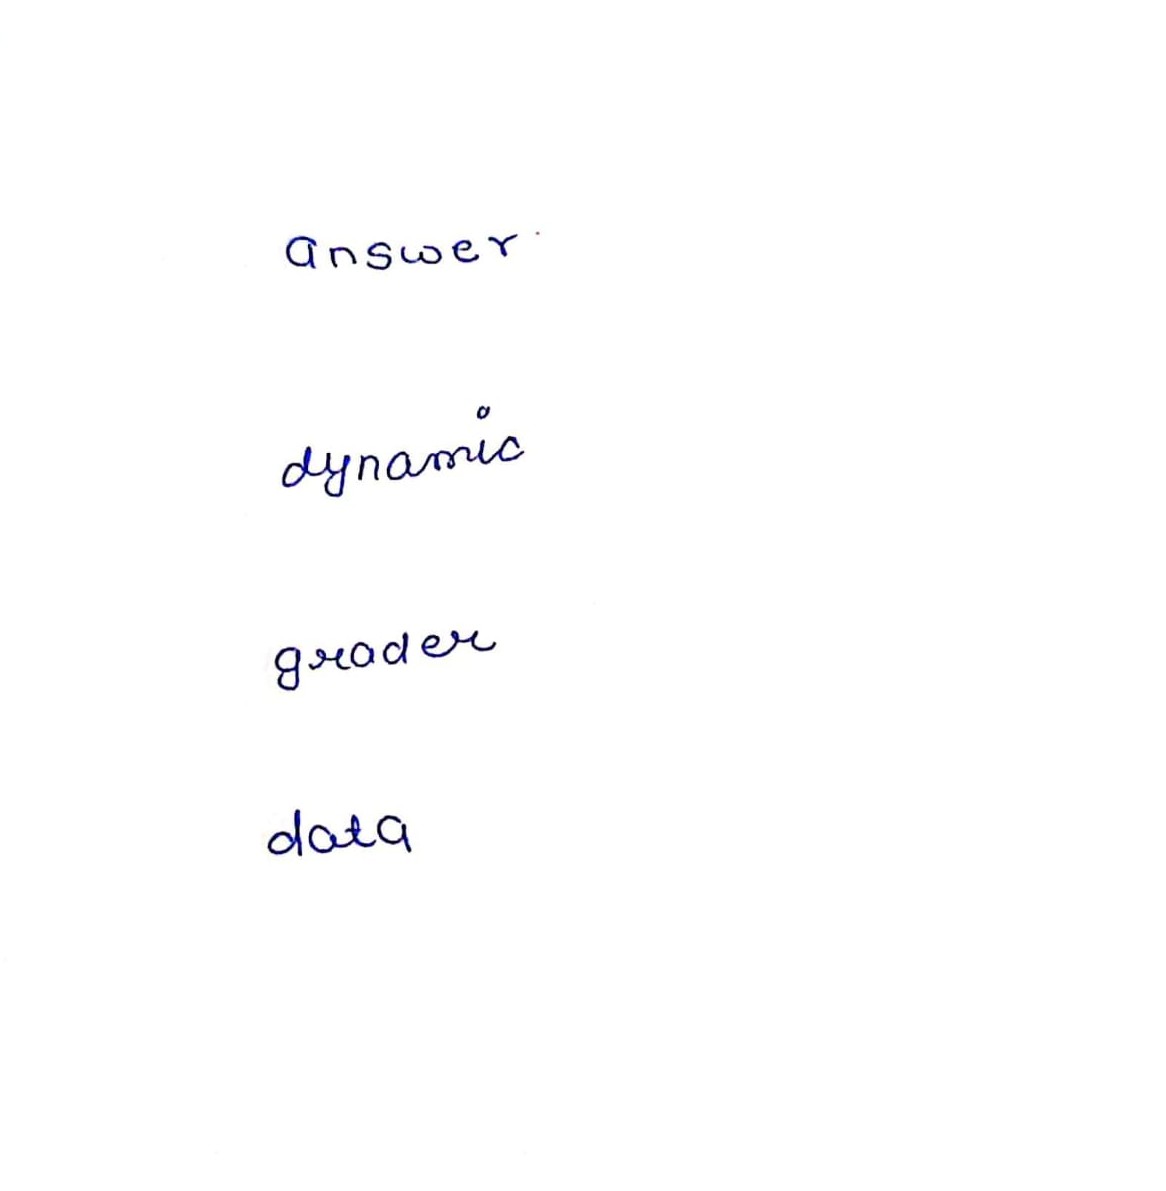 answer
dynamic
grader
data